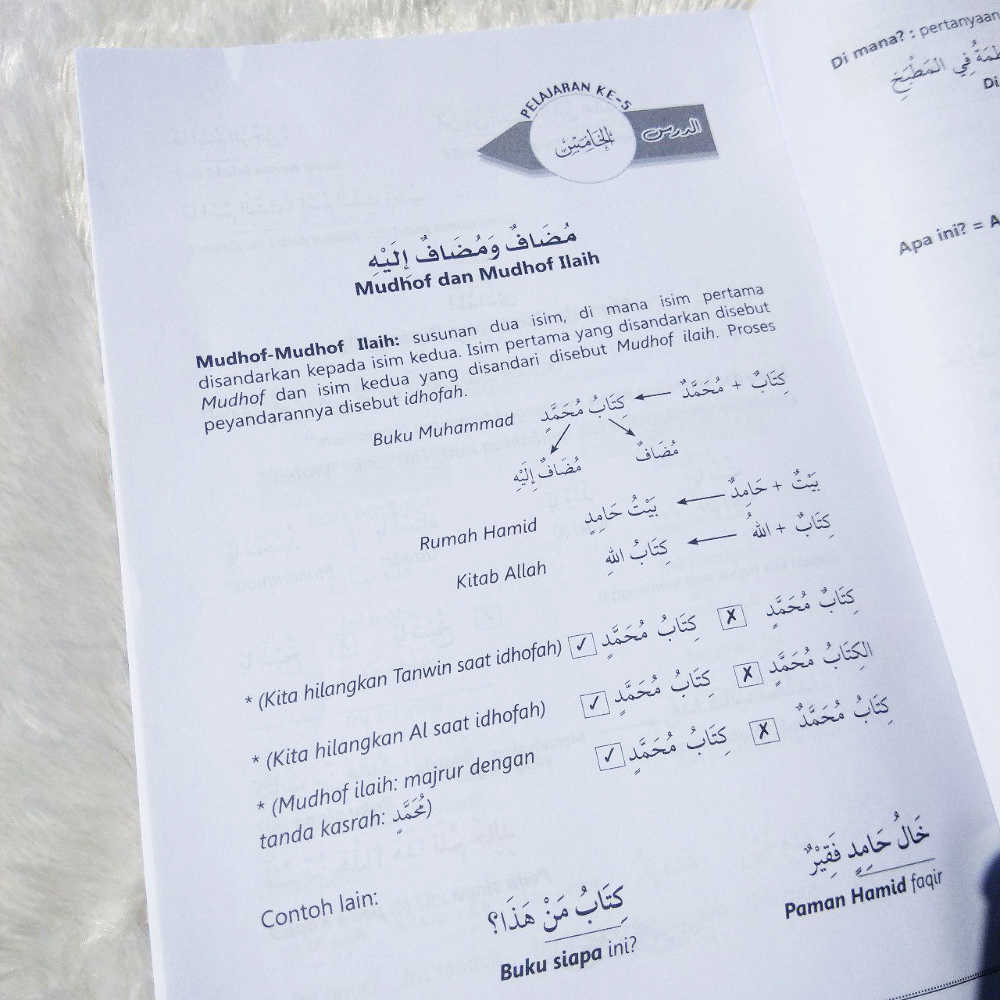 PELAJARAN KE-5
الدرس الخامس
مُضَافٌ وَمُضَافٌ إِلَيْهِ
Mudhof dan Mudhof Ilaih
Mudhof-Mudhof Ilaih: susunan dua isim, di mana isim pertama
disandarkan kepada isim kedua. Isim pertama yang disandarkan disebut
Mudhof dan isim kedua yang disandari disebut Mudhof ilaih. Proses
peyandarannya disebut idhofah.
Buku Muhammad كِتَابٌ + مُحَمَّدٌ ← كِتَابُ مُحَمَّدٍ
مُضَافٌ مُضَافٌ إِلَيْهِ
Rumah Hamid بَيْتٌ + حَامِدٌ ← بَيْتُ حَامِدٍ
Kitab Allah كِتَابٌ + اللهُ ← كِتَابُ اللهِ
* (Kita hilangkan Tanwin saat idhofah) ✓ كِتَابُ مُحَمَّدٍ ✗ كِتَابٌ مُحَمَّدٍ
* (Kita hilangkan Al saat idhofah) ✓ كِتَابُ مُحَمَّدٍ ✗ الكِتَابُ مُحَمَّدٍ
* (Mudhof ilaih: majrur dengan ✓ كِتَابُ مُحَمَّدٍ ✗ كِتَابُ مُحَمَّدٌ
tanda kasrah: مُحَمَّدٍ)
Contoh lain:
خَالُ حَامِدٍ فَقِيْرٌ
Paman Hamid faqir
كِتَابُ مَنْ هَذَا؟
Buku siapa ini?
Di mana? : pertanyaan
فِي المَطْبَخِ
Di
Apa ini? = A